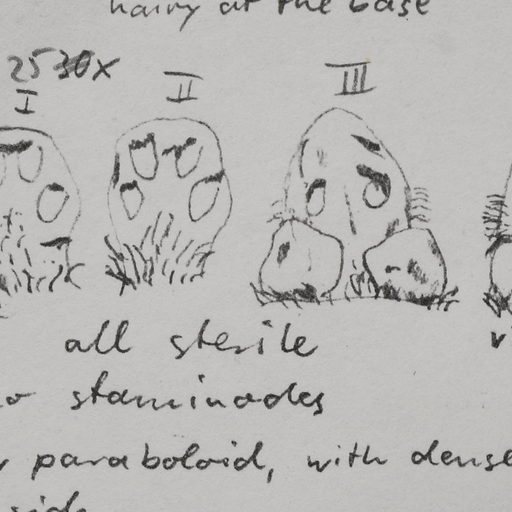 hairy at the base
30x
I II III
all sterile
staminodes
paraboloid, with dense
side